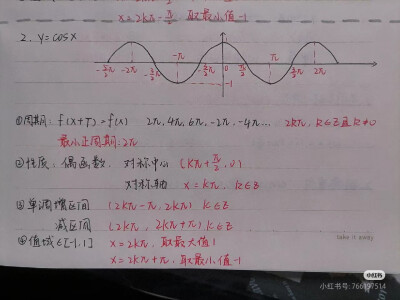 x=2kπ-π/2 取最小值-1
2. y=cosx
-5/2π -2π -3/2π -π -π/2 0 π 3/2π 2π
-1
①周期: f(x+T)=f(x) 2π, 4π, 6π, -2π, -4π... 2kπ, k∈Z且k≠0
最小正周期:2π
②性质: 偶函数, 对称中心 (kπ+π/2, 0)
对称轴 x=kπ, k∈Z
③单调增区间 (2kπ-π, 2kπ) k∈Z
减区间 (2kπ, 2kπ+π) k∈Z
④值域∈[-1,1] x=2kπ, 取最大值1
x=2kπ+π, 取最小值-1
小红书号: 766197514